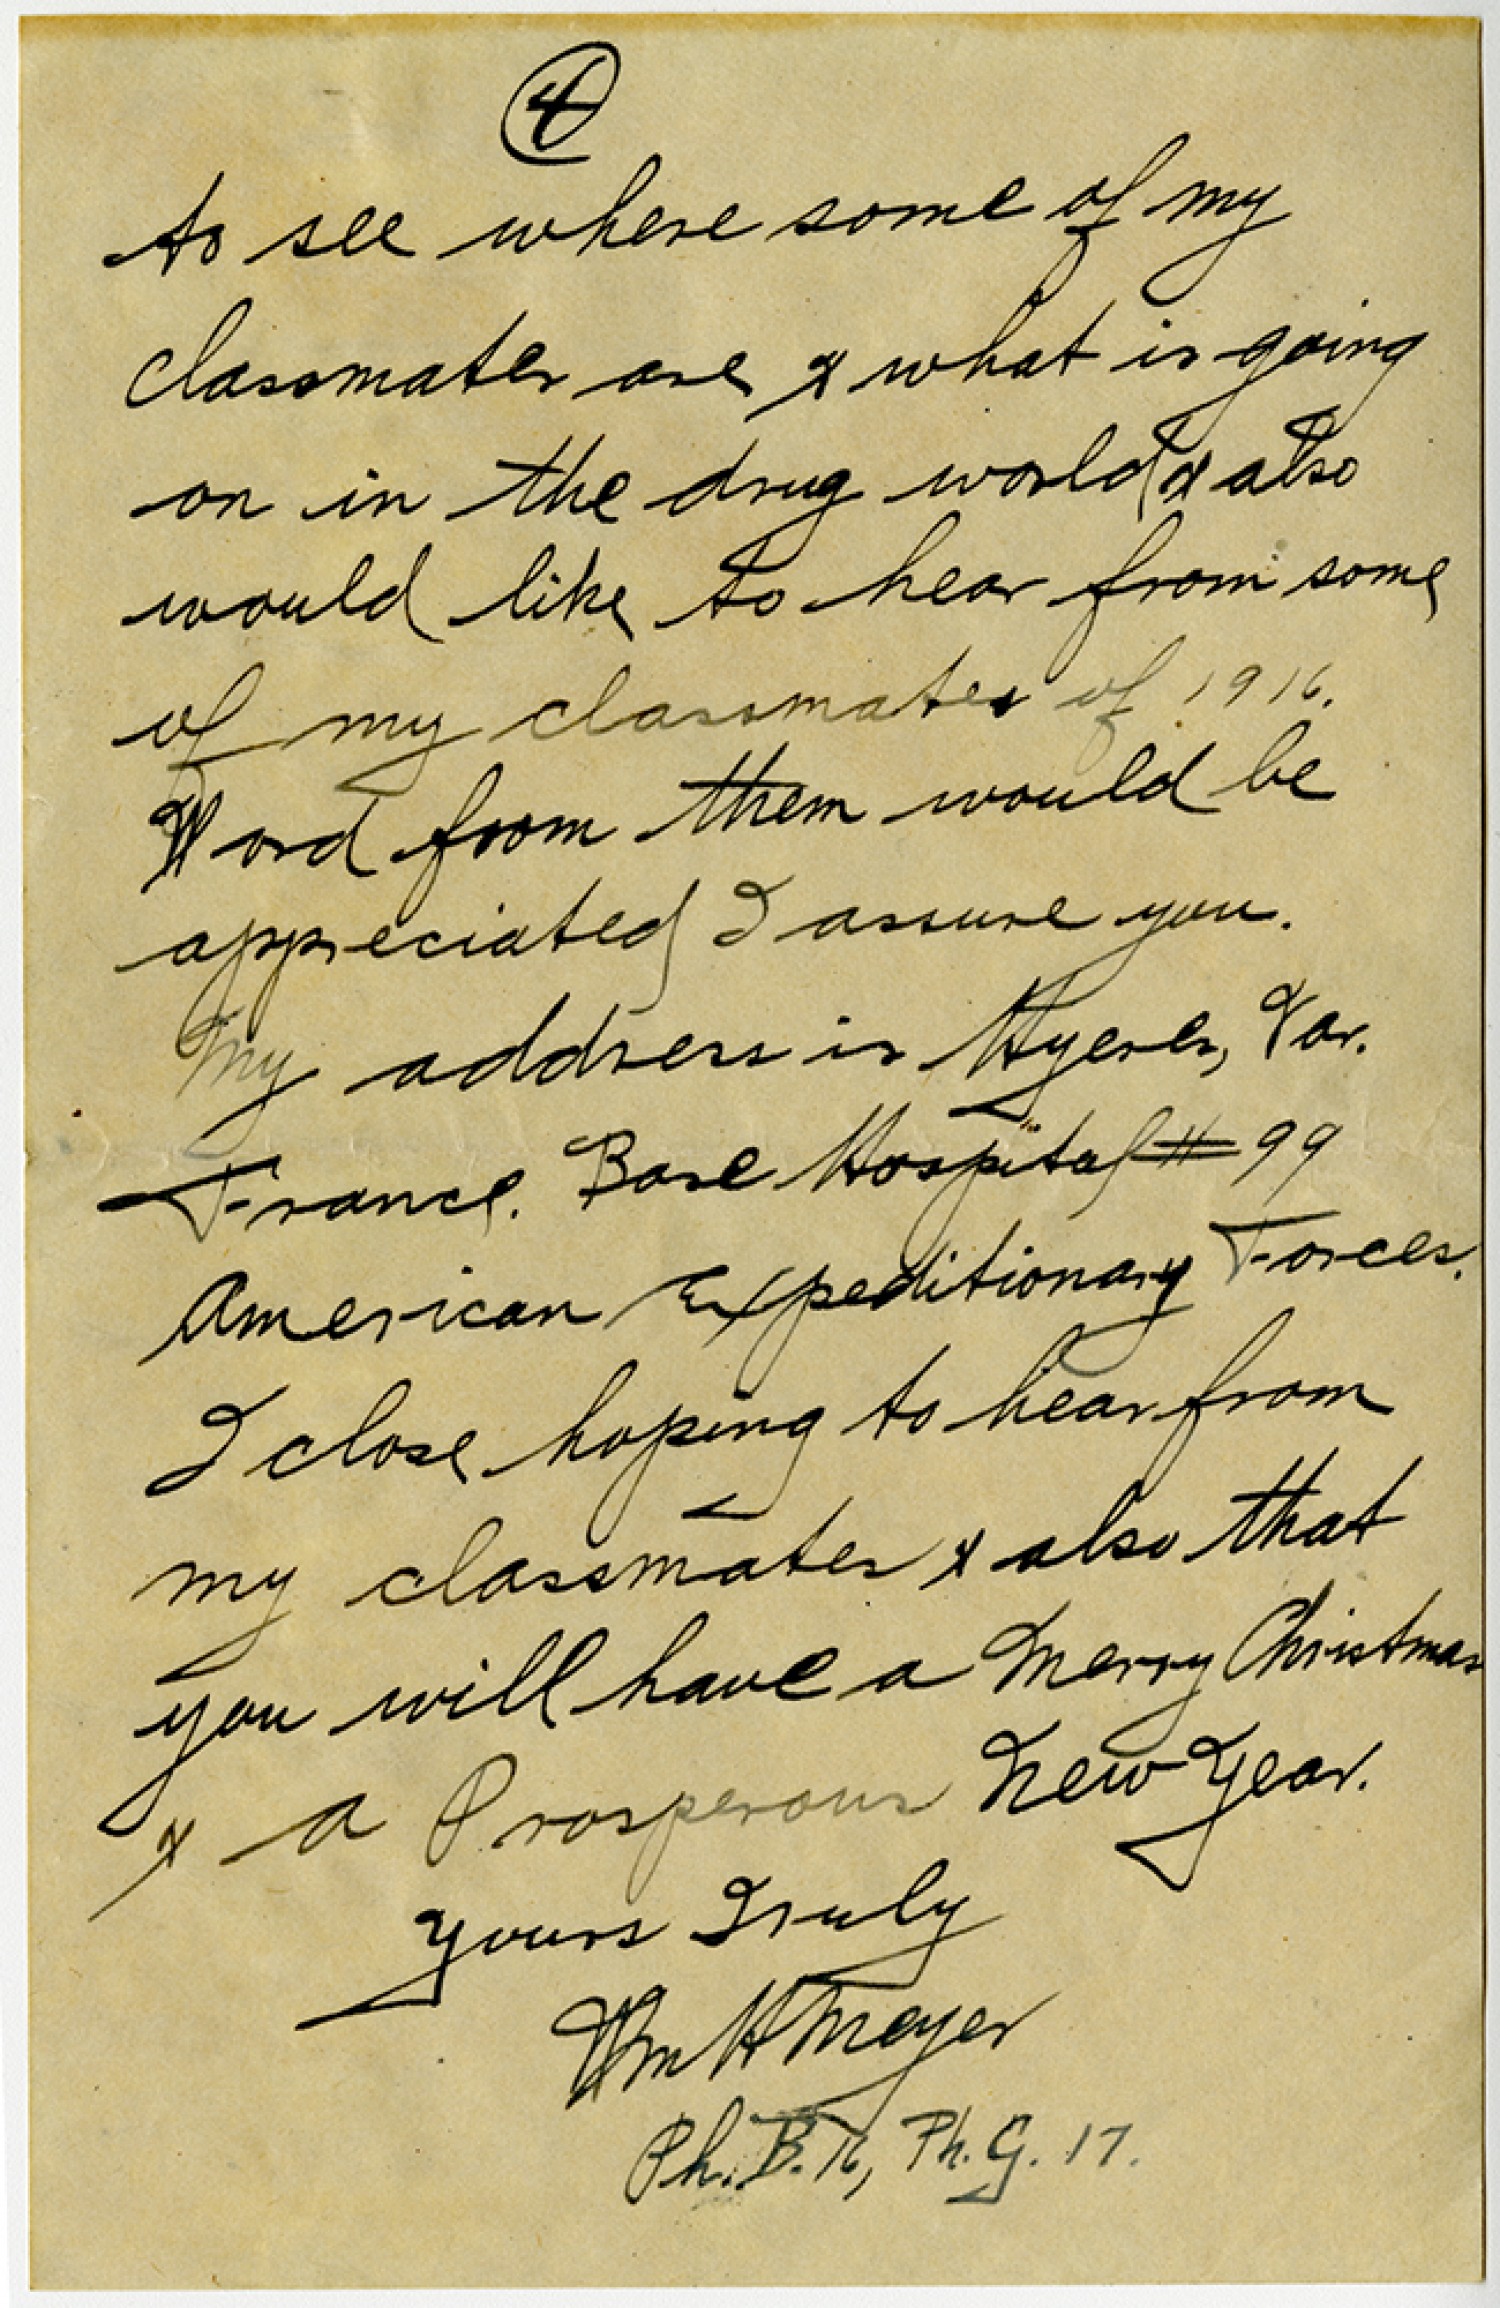 4
to see where some of my
classmates are & what is going
on in the drug world & also
would like to hear from some
of my classmates of 1916.
Word from them would be
appreciated I assure you.
My address is Hyeres, Var.
France. Base Hospital # 99
American Expeditionary Forces.
I close hoping to hear from
my classmates & also that
you will have a Merry Christmas
& a Prosperous New Year.
Yours Truly
Wm H Meyer
Ph. B. 16, Ph. G. 17.